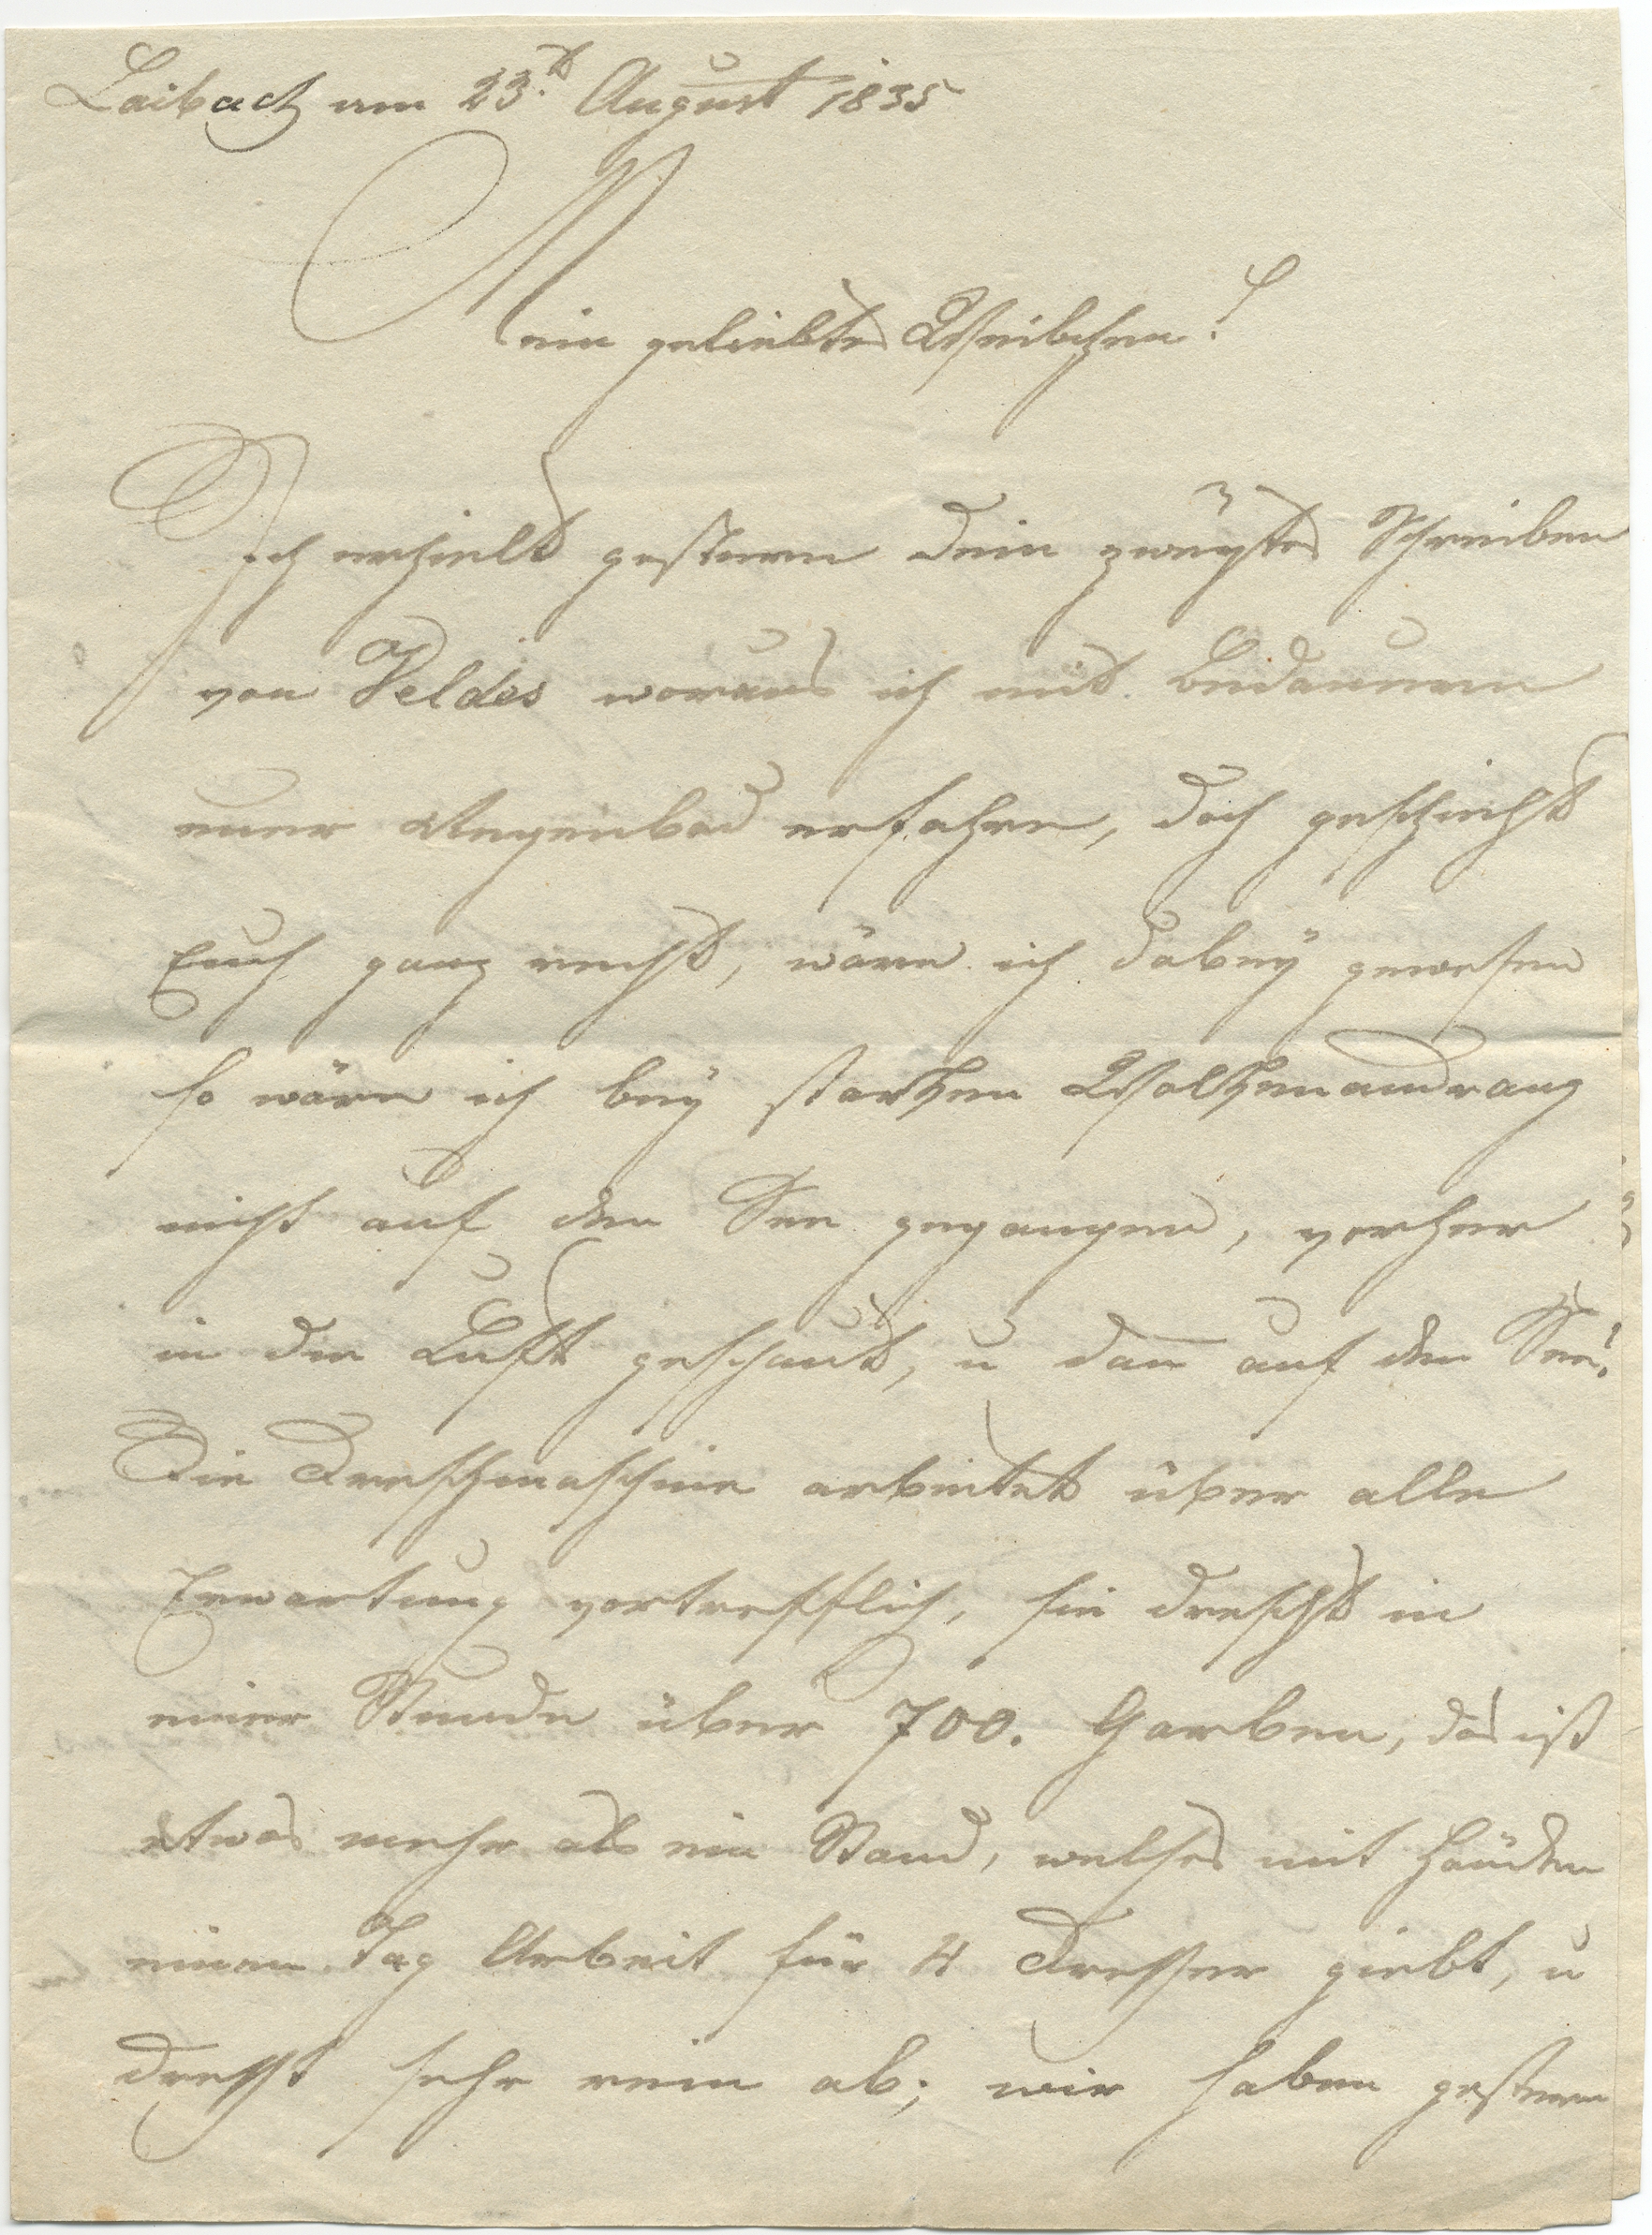 Laibach am 23.t August 1835
Mein geliebtes Weibchen!
Ich erhielt gestern dein zweytes Schreiben
von Veldes woraus ich mit Bedauern
euer Regenbad erfahre, doch geschieht
Euch ganz recht, wäre ich dabey gewesen
so wäre ich bey starken Wolkenandrang
nicht auf den See gegangen, vorher
in die Luft geschaut, u dan̅ auf den See!
Die Dreschmaschine arbeitet über alle
Erwartung vortrefflich, sie drescht in
einer Stunde über 700. Garben, das ist
etwas mehr als ein Stand, welches mit Händen
einen Tag Arbeit für 4 Drescher giebt, u
drescht sehr rein ab; wir haben gestern